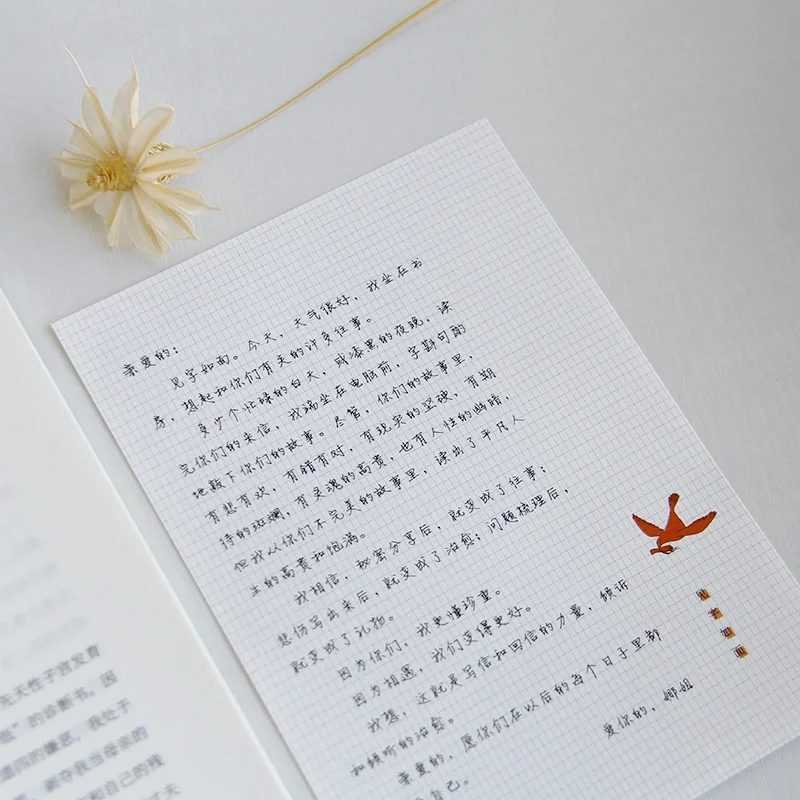 亲爱的：
见字如面。今天，天气很好，我坐在书
房，想起和你们有关的许多往事。
多少个忙碌的白天，或漆黑的夜晚，读
完你们的来信，我端坐在电脑前，字斟句酌
地敲下你们的故事。尽管，你们的故事里，
有悲有欢，有错有对，有现实的坚硬，有期
待的斑斓，有灵魂的高贵，也有人性的幽暗，
但我从你们不完美的故事里，读出了平凡人
生的高贵和饱满。
我相信，秘密分享后，就变成了往事；
悲伤写出来后，就变成了治愈；问题梳理后，
就变成了礼物。
因为你们，我更懂珍重。
因为相遇，我们变得更好。
我想，这就是写信和回信的力量，倾诉
和倾听的治愈。
亲爱的，愿你们在以后的每个日子里都
自己。
爱你的，娜姐
见字如面
先天性子宫发育
的诊断书。因
我处于
剥夺我当母亲的
和自己的残
天